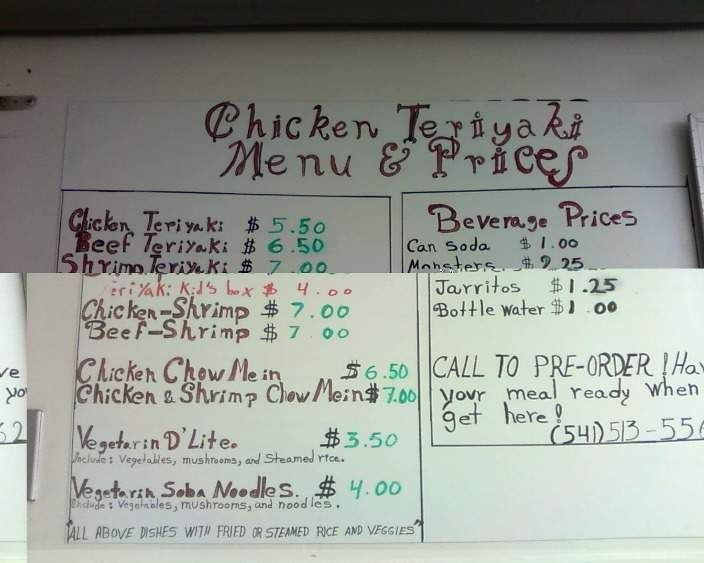 Chicken Teriyaki
Menu & Prices
Chicken Teriyaki $ 5.50
Beef Teriyaki $ 6.50
Shrimp Teriyaki $ 7.00
Teriyaki Kid's box $ 4.00
Chicken-Shrimp $ 7.00
Beef-Shrimp $ 7.00
Chicken Chow Mein $6.50
Chicken & Shrimp Chow Mein $7.00
Vegetarin D'Lite. $3.50
Include: Vegetables, mushrooms, and Steamed rice.
Vegetarin Soba Noodles. $ 4.00
Include: Vegetables, mushrooms, and noodles.
"ALL ABOVE DISHES WITH FRIED OR STEAMED RICE AND VEGGIES"
Beverage Prices
Can Soda $ 1.00
Monsters $ 2.25
Jarritos $1.25
Bottle water $1.00
CALL TO PRE-ORDER! Hav
your meal ready when
get here!
(541) 513-556